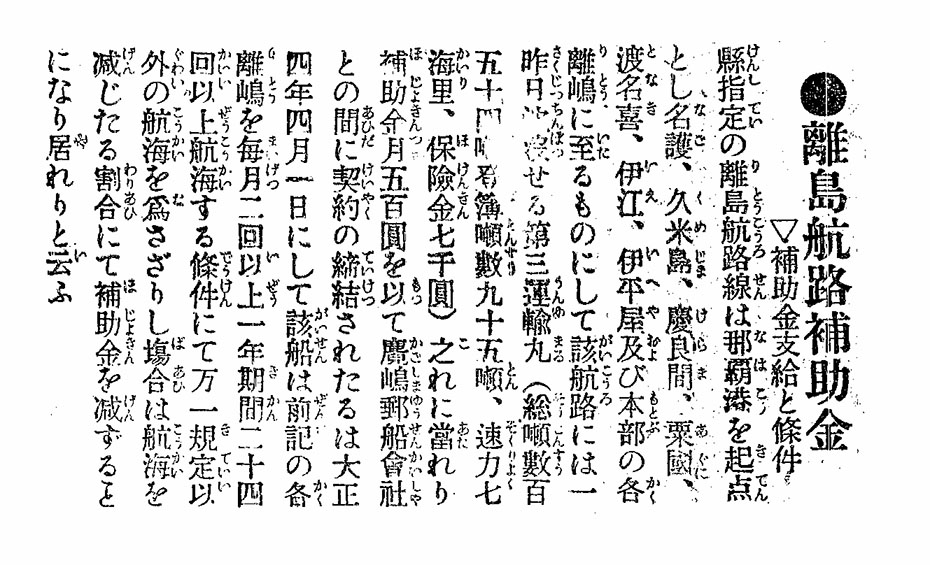 ●離島航路補助金
▽補助金支給と條件
縣指定の離島航路線は那覇港を起点
とし名護、久米島、慶良間、粟國、
渡名喜、伊江、伊平屋及び本部の各
離嶋に至るものにして該航路には一
昨日沈没せる第三運輸丸（総噸數百
五十四噸、登簿噸數九十五噸、速力七
海里、保險金七千圓）之れに當れり
補助金月五百圓を以て鹿嶋郵船會社
との間に契約の締結されたるは大正
四年四月一日にして該船は前記の各
離嶋を毎月二回以上一年期間二十四
回以上航海する條件にて万一規定以
外の航海を爲さざりし塲合は航海を
減じたる割合にて補助金を減ずると
になり居れりと云ふ